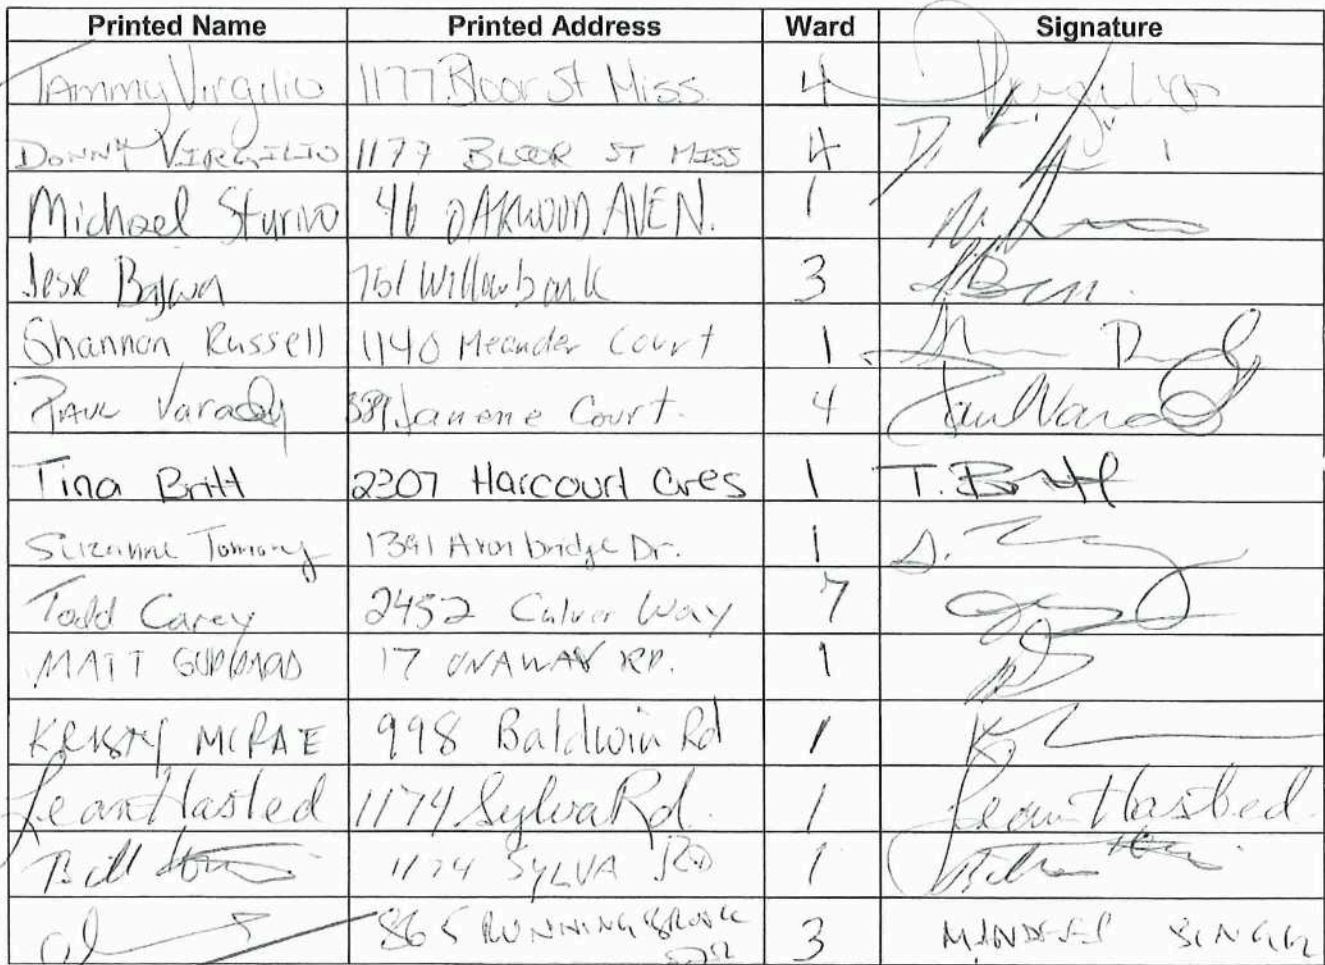 Printed Name Printed Address Ward Signature
Tammy Virgilio 1177 Bloor St Miss. 4
DONNY VIRGILIO 1177 BLOOR ST MISS 4 D.
Michael Sturino 46 OAKWOOD AVEN. 1
Jesse Bajwa 751 Willowbank 3
Shannon Russell 1140 Meander Court 1
PAUL Varady 589 Janene Court. 4 Paul Varady
Tina Britt 2307 Harcourt Cres 1 T. Britt
Suzanne 1391 Avonbridge Dr. 1 S.
Todd Carey 2452 Culver Way 7
MATT 17 ONAWAY RD. 1
KRISTY MCRAE 998 Baldwin Rd 1 K
Lean Hasted 1174 Sylva Rd. 1 Lean Hasted
Bill 1174 SYLVA RD 1
865 RUNNINGBROOK 3 MANDEEP SINGH